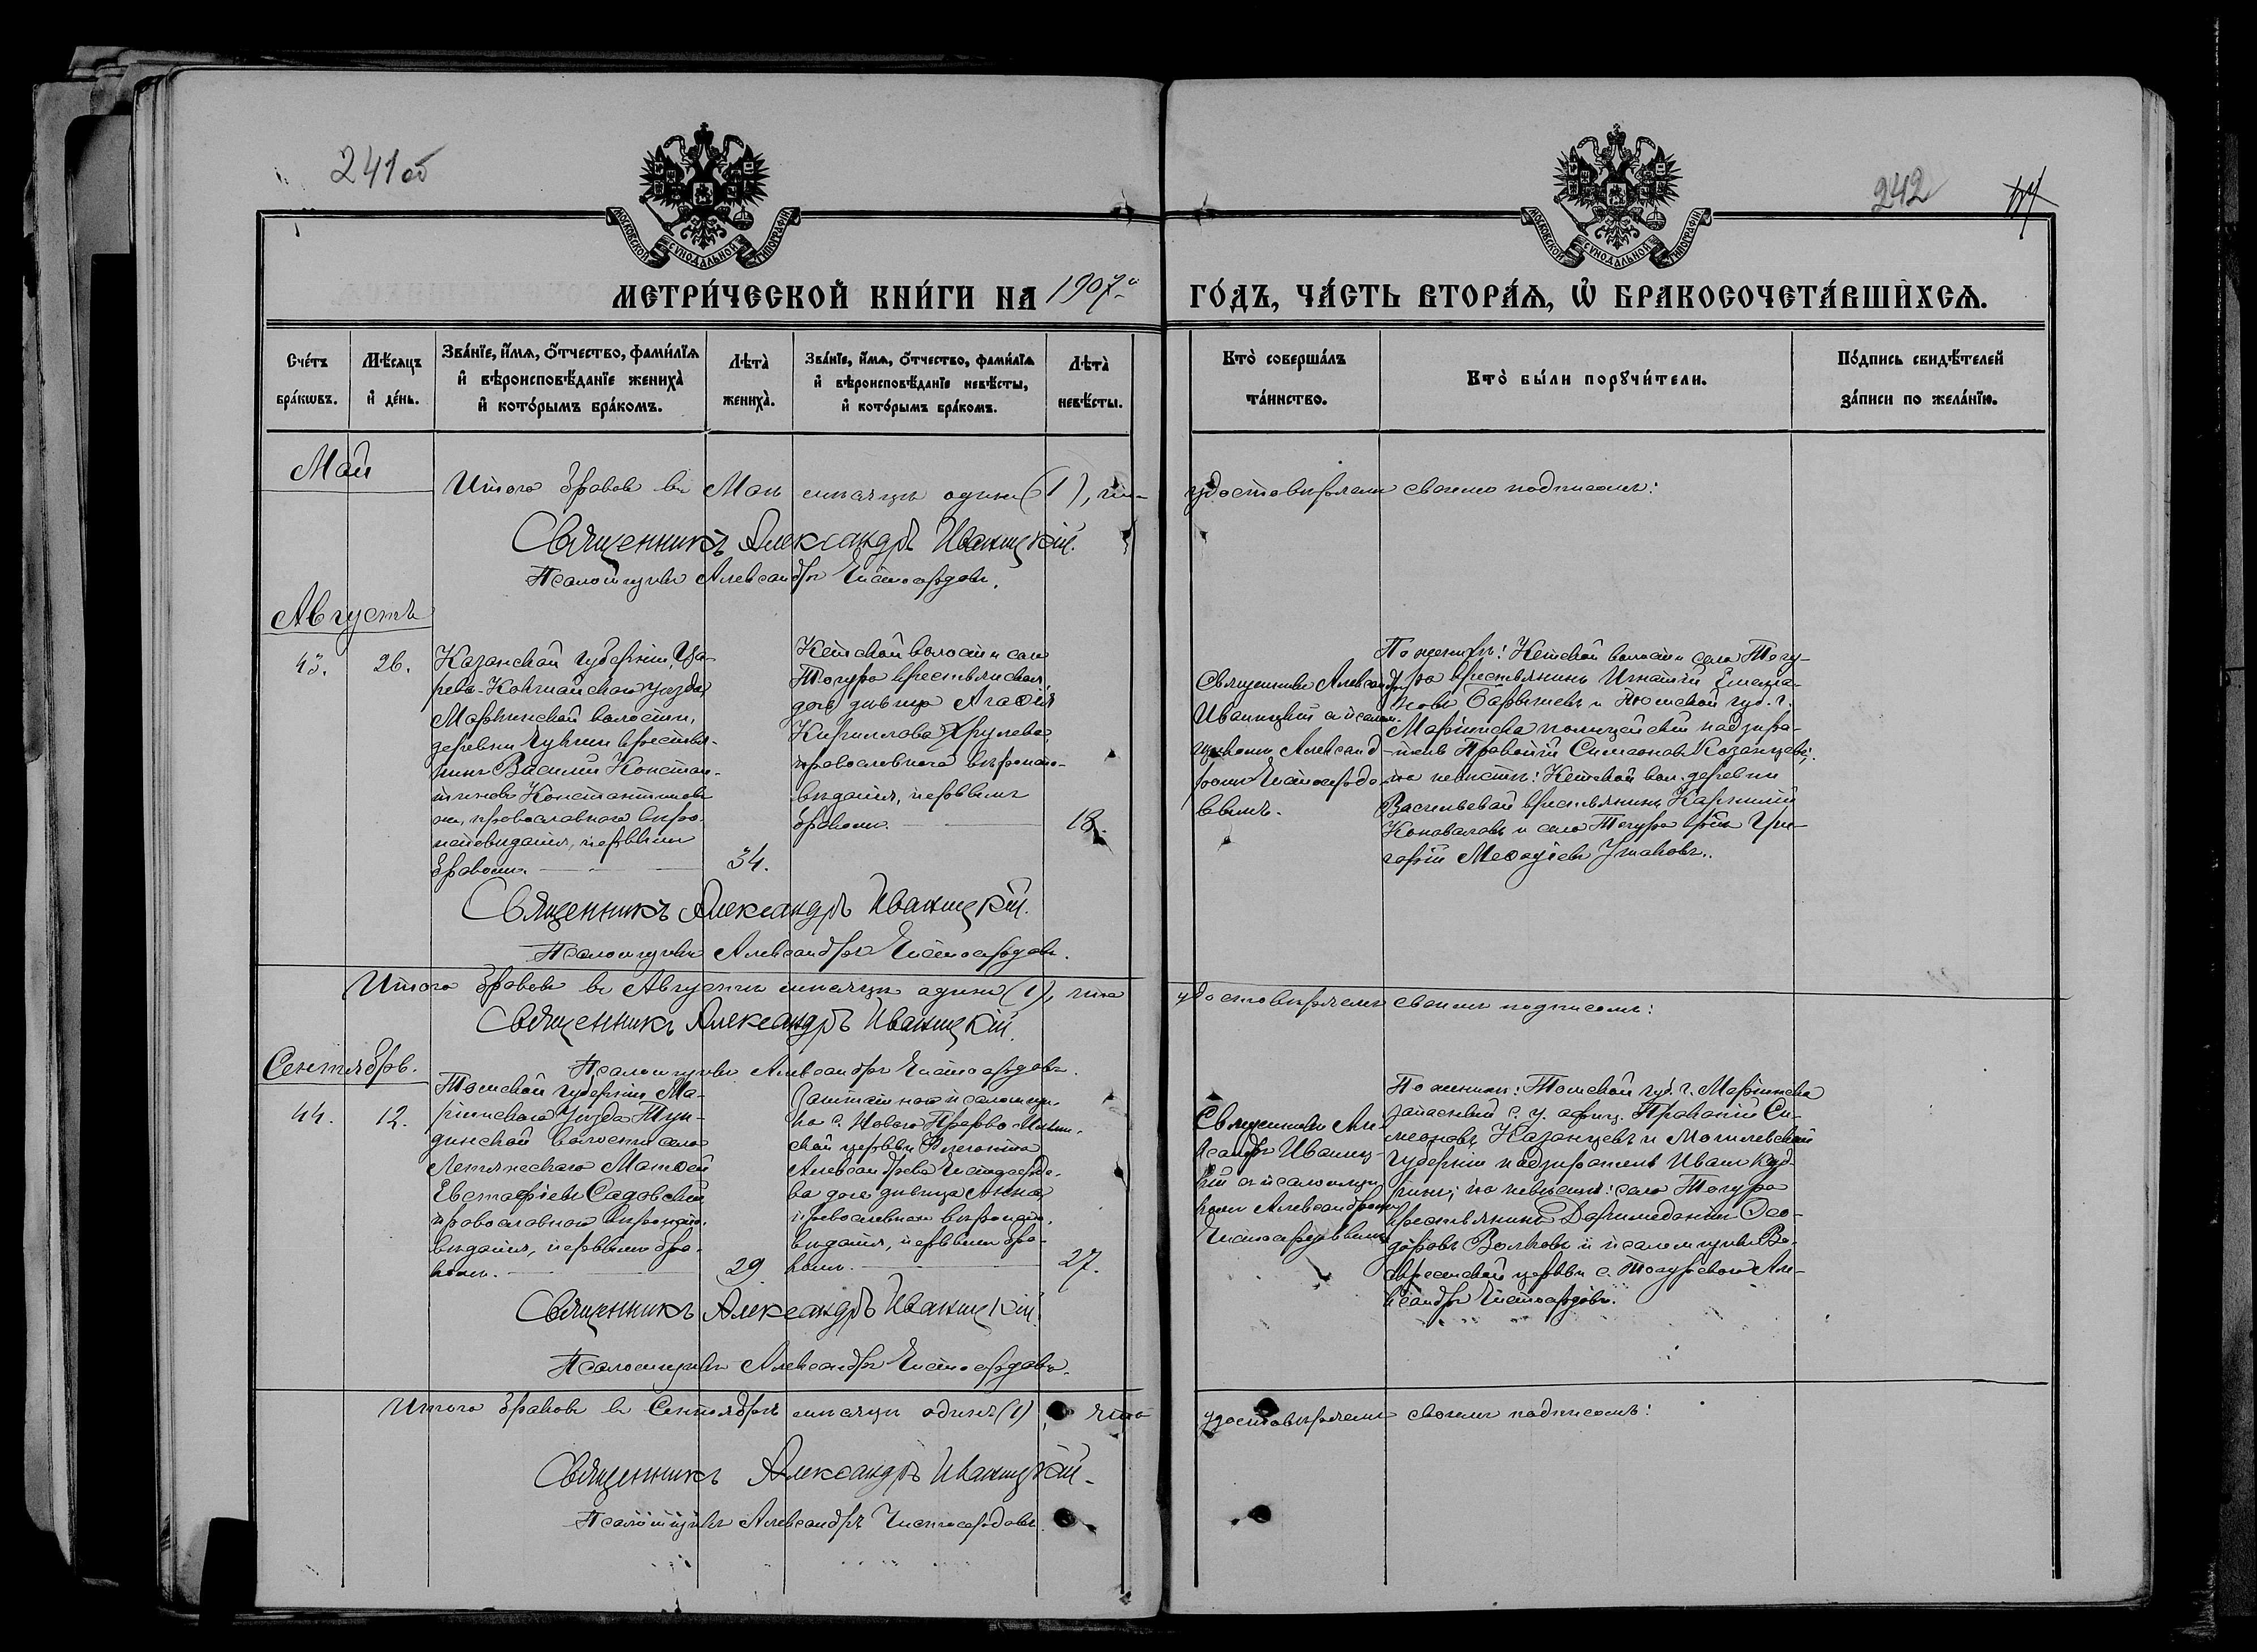 241 об
242
МОСКОВСКОЙ СѴНОДАЛЬНОЙ ТИПОГРАФІИ
МОСКОВСКОЙ СѴНОДАЛЬНОЙ ТИПОГРАФІИ
МЕТРИ́ЧЕСКОЙ КНИ́ГИ НА 1907й
ГО́ДЪ, ЧА́СТЬ ВТОРА́Ѧ, Ѽ БРАКОСОЧЕТА́ВШИХСѦ.
Сче́тъ бра́кѡвъ.
Мѣ́сяцъ и҆ де́нь.
Зва́нїе, и҆́мѧ, о҆́тчество, фами́лїѧ
и҆ вѣроисповѣ́данїе жениха̀
и҆ кото́рымъ бра́комъ.
Лѣта̀ жениха̀.
Зва́нїе, и҆́мѧ, о҆́тчество, фами́лїѧ
и҆ вѣроисповѣ́данїе невѣ́сты,
и҆ кото́рымъ бра́комъ.
Лѣта̀ невѣ́сты.
Кто̀ соверша́лъ та́инство.
Кто̀ бы́ли порꙋчи́тели.
По́дпись свидѣ́телей за́писи по жела́нїю.
Май
Итого браков въ Маѣ мѣсяцѣ один (1), что
удостовѣряемъ своимъ подписомъ:
Священникъ Александръ Иваницкій.
Псаломщикъ Александръ Чистосердовъ.
Августъ
43. 26.
Казанской губерніи, Ца-
рево-Кокшайскаго уѣзда,
Марьинской волости,
деревни крестья-
нинъ Василій Констан-
тиновъ Константинов
онъ, православнаго вѣро-
исповѣданія, первымъ
бракомъ.
34.
Кетской волости села
Тогура крестьянская
дочь дѣвица Агафія
Кириллова Хрулева,
православнаго вѣроиспо-
вѣданія, первымъ
бракомъ.
18.
Священникъ Александръ
Иваницкій съ псалом-
щикомъ Александ-
ромъ Чистосердо-
вымъ.
По женихѣ: Кетской волости села Тогу-
ра крестьянинъ Игнатій
Барышевъ и Томской губ. г.
Маріинска полицейскій надзира-
тель Прокопій Симеоновъ Казанцевъ;
по невѣстѣ: Кетской вол. деревни
Васильевой крестьянинъ
Коноваловъ и села Тогура крест. Гри-
горій Меѳодіевъ Ушаковъ.
Священникъ Александръ Иваницкій.
Псаломщикъ Александръ Чистосердовъ.
Итого браковъ въ Августѣ мѣсяцѣ одинъ (1), что
удостовѣряемъ своимъ подписомъ:
Священникъ Александръ Иваницкій.
Псаломщикъ Александръ Чистосердовъ.
Сентябрь.
44. 12.
Томской губерніи Ма-
ріинскаго уѣзда Тун-
динской волости села
Летяжескаго Матѳей
Евстафіевъ Садовскій
православнаго вѣроиспо-
вѣданія, первымъ бра-
комъ.
29
Заштатного псаломщи-
ка с. Новаго
ской церкви
Александрова Чистосердо-
ва дочь дѣвица Анна
православнаго вѣроиспо-
вѣданія, первымъ бра-
комъ.
27.
Священникъ Але-
ксандръ Иваниц-
кій съ псаломщи-
комъ Александромъ
Чистосердовымъ
По женихѣ: Томской губ. г. Маріинска
запасный Прокопій Си-
меоновъ Казанцевъ и Могилевской
губерніи надзиратель Иванъ
по невѣстѣ: села Тогура
крестьянинъ Ѳео-
доровъ Волковъ и псаломщикъ Во-
скресенской церкви с. Тогурскаго Але-
ксандръ Чистосердовъ.
Священникъ Александръ Иваницкій.
Псаломщикъ Александръ Чистосердовъ.
Итого браковъ въ Сентябрѣ мѣсяцѣ одинъ (1), что
удостовѣряемъ своимъ подписомъ:
Священникъ Александръ Иваницкій.
Псаломщикъ Александръ Чистосердовъ.